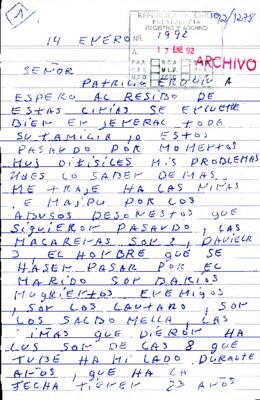 1
REPUBLICA DE CHILE
PRESIDENCIA
92/1278
14 ENERO 1992
17 ENE 92
ARCHIVO
SEÑOR
PATRICIA
ESPERO AL RESIBO DE
ESTAS SE
BIEN EN JENERAL TODA
SU FAMILIA YO ESTOS
PASANDO POR MOMENTOS
MUS DIFISILES MIS PROBLEMAS
UDES LO SABEN DE MAS
ME TRAJE HA LAS NIÑAS
A MAIPU POR LOS
ABUSOS DESONESTOS QUE
SIGUIERON PASANDO, LAS
MACARENAS SON 2,
2, EL HOMBRE QUE SE
HASEN PASAR POR EL
MARIDO SON DARIOS
ENEMIGOS
, SON LOS LAUTARO, SON
LOS SALDO MELLA, LAS
QUE DIERON HA
LUS SON DE LAS 8 QUE
TUBE HA MI LADO DURANTE
AÑOS, QUE HA LA
FECHA TIENEN 23 AÑOS